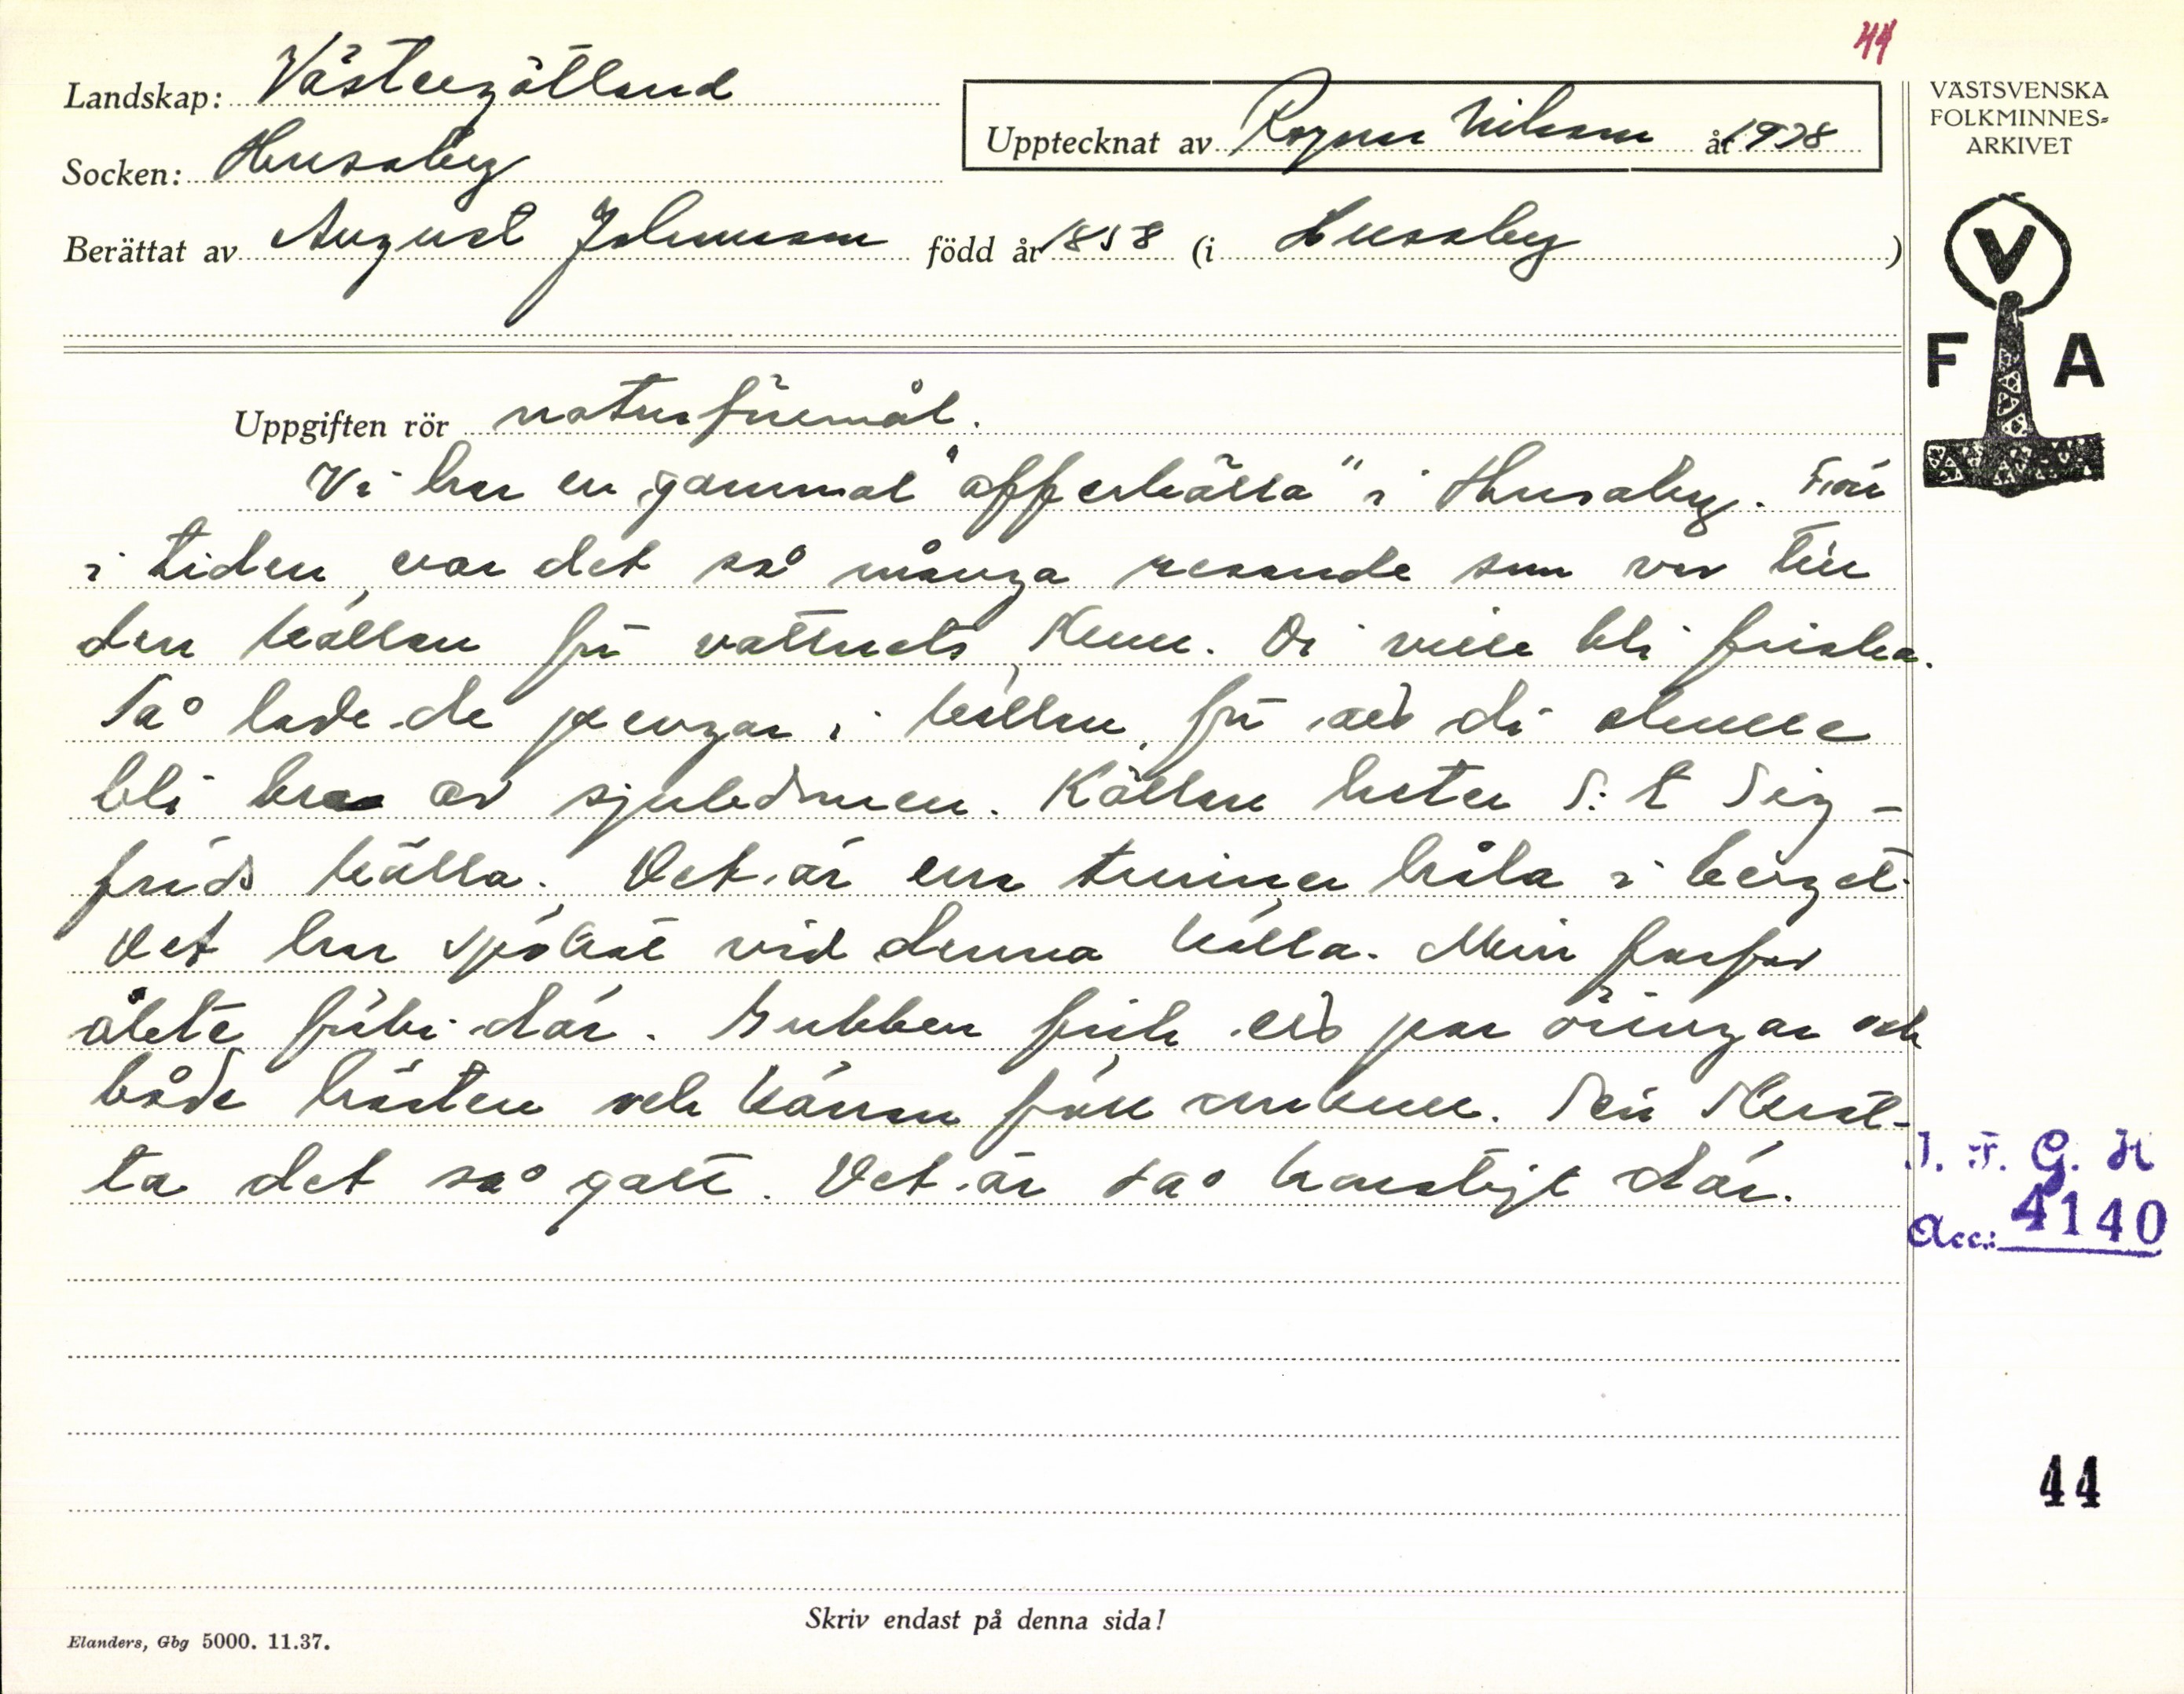 44
Landskap: Västergötland
Upptecknat av Ragnar Nilsson år 1938
Socken: Husaby
Berättat av August Johansson född år 1858 (i Husaby)
VÄSTSVENSKA
FOLKMINNES=
ARKIVET
V
F A
Uppgiften rör naturföremål.
Vi har en gammal "offerkälla" i Husaby. Förr
i tiden var det så många resande som var till
den källan för vattnets skull. Di ville bli friska.
Så lade de pengar i källan för att di skulle
bli bra av sjukdomen. Källan heter S:t Sig-
frids källa. Det är en trind håla i berget.
Det har spökat vid denna källa. Min farfar
åkte förbi där. Gubben fick ett par öringar och
både hästen och kärran föll omkull. Sen
ta det så gått. Det är så harsligt där.
J. F. G. H
Acc.: 4140
44
Skriv endast på denna sida!
Elanders, Gbg 5000. 11.37.